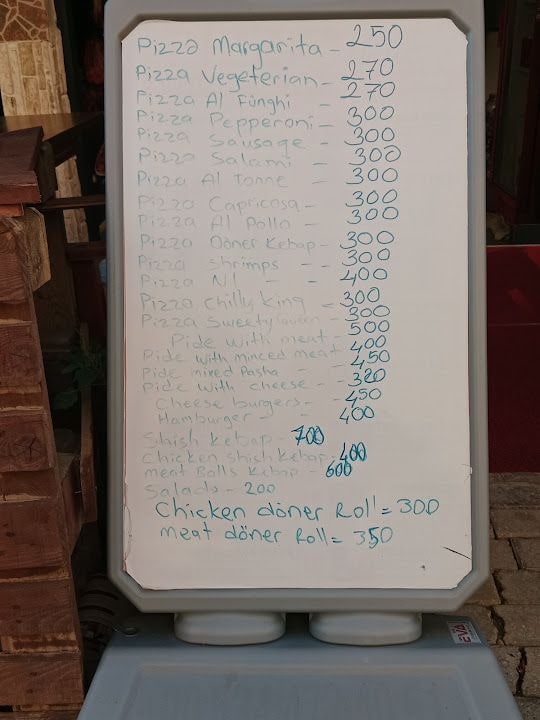 Pizza Margarita - 250
Pizza Vegeterian - 270
Pizza Al Fünghi - 270
Pizza Pepperoni - 300
Pizza Sausage - 300
Pizza Salami - 300
Pizza Al Tonne - 300
Pizza Capricosa - 300
Pizza Al Pollo - 300
Pizza Döner Kebap - 300
Pizza Shrimps - - 300
Pizza N1 - - 400
Pizza Chilly King - 300
Pizza Sweety - 300
Pide with meat - 500
Pide with minced meat 400
Pide mixed Pasha - 450
Pide with cheese - - 320
Cheese burgers - - 450
Hamburger - - 400
Shish Kebap - 700
Chicken Shish Kebap - 400
meat Balls Kebap - 600
Salads - 200
Chicken döner Roll = 300
meat döner Roll = 350
EVA